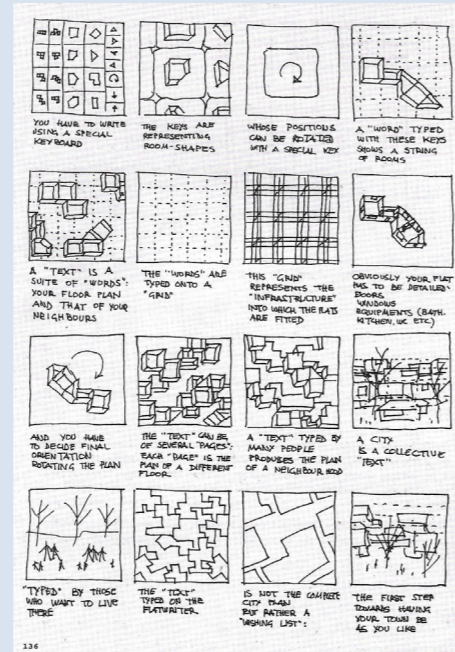 YOU HAVE TO WRITE
USING A SPECIAL
KEYBOARD
THE KEYS ARE
REPRESENTING
ROOM-SHAPES
WHOSE POSITIONS
CAN BE ROTATED
WITH A SPECIAL KEY
A "WORD" TYPED
WITH THESE KEYS
SHOWS A STRING
OF ROOMS
A "TEXT" IS A
SUITE OF "WORDS":
YOUR FLOOR PLAN
AND THAT OF YOUR
NEIGHBOURS
THE "WORDS" ARE
TYPED ONTO A
"GRID"
THIS "GRID"
REPRESENTS THE
"INFRASTRUCTURE"
INTO WHICH THE FLATS
ARE FITTED
OBVIOUSLY YOUR FLAT
HAS TO BE DETAILED:
DOORS
WINDOWS
EQUIPMENTS (BATH.
KITCHEN, WC ETC.)
AND YOU HAVE
TO DECIDE FINAL
ORIENTATION
ROTATING THE PLAN
THE "TEXT" CAN BE
OF SEVERAL "PAGES":
EACH "PAGE" IS THE
PLAN OF A DIFFERENT
FLOOR
A "TEXT" TYPED BY
MANY PEOPLE
PRODUCES THE PLAN
OF A NEIGHBOURHOOD
A CITY
IS A COLLECTIVE
"TEXT"
"TYPED" BY THOSE
WHO WANT TO LIVE
THERE
THE "TEXT"
TYPED ON THE
FLATWRITER
IS NOT THE COMPLETE
CITY PLAN
BUT RATHER A
"WISHING LIST":
THE FIRST STEP
TOWARDS HAVING
YOUR TOWN BE
AS YOU LIKE
136